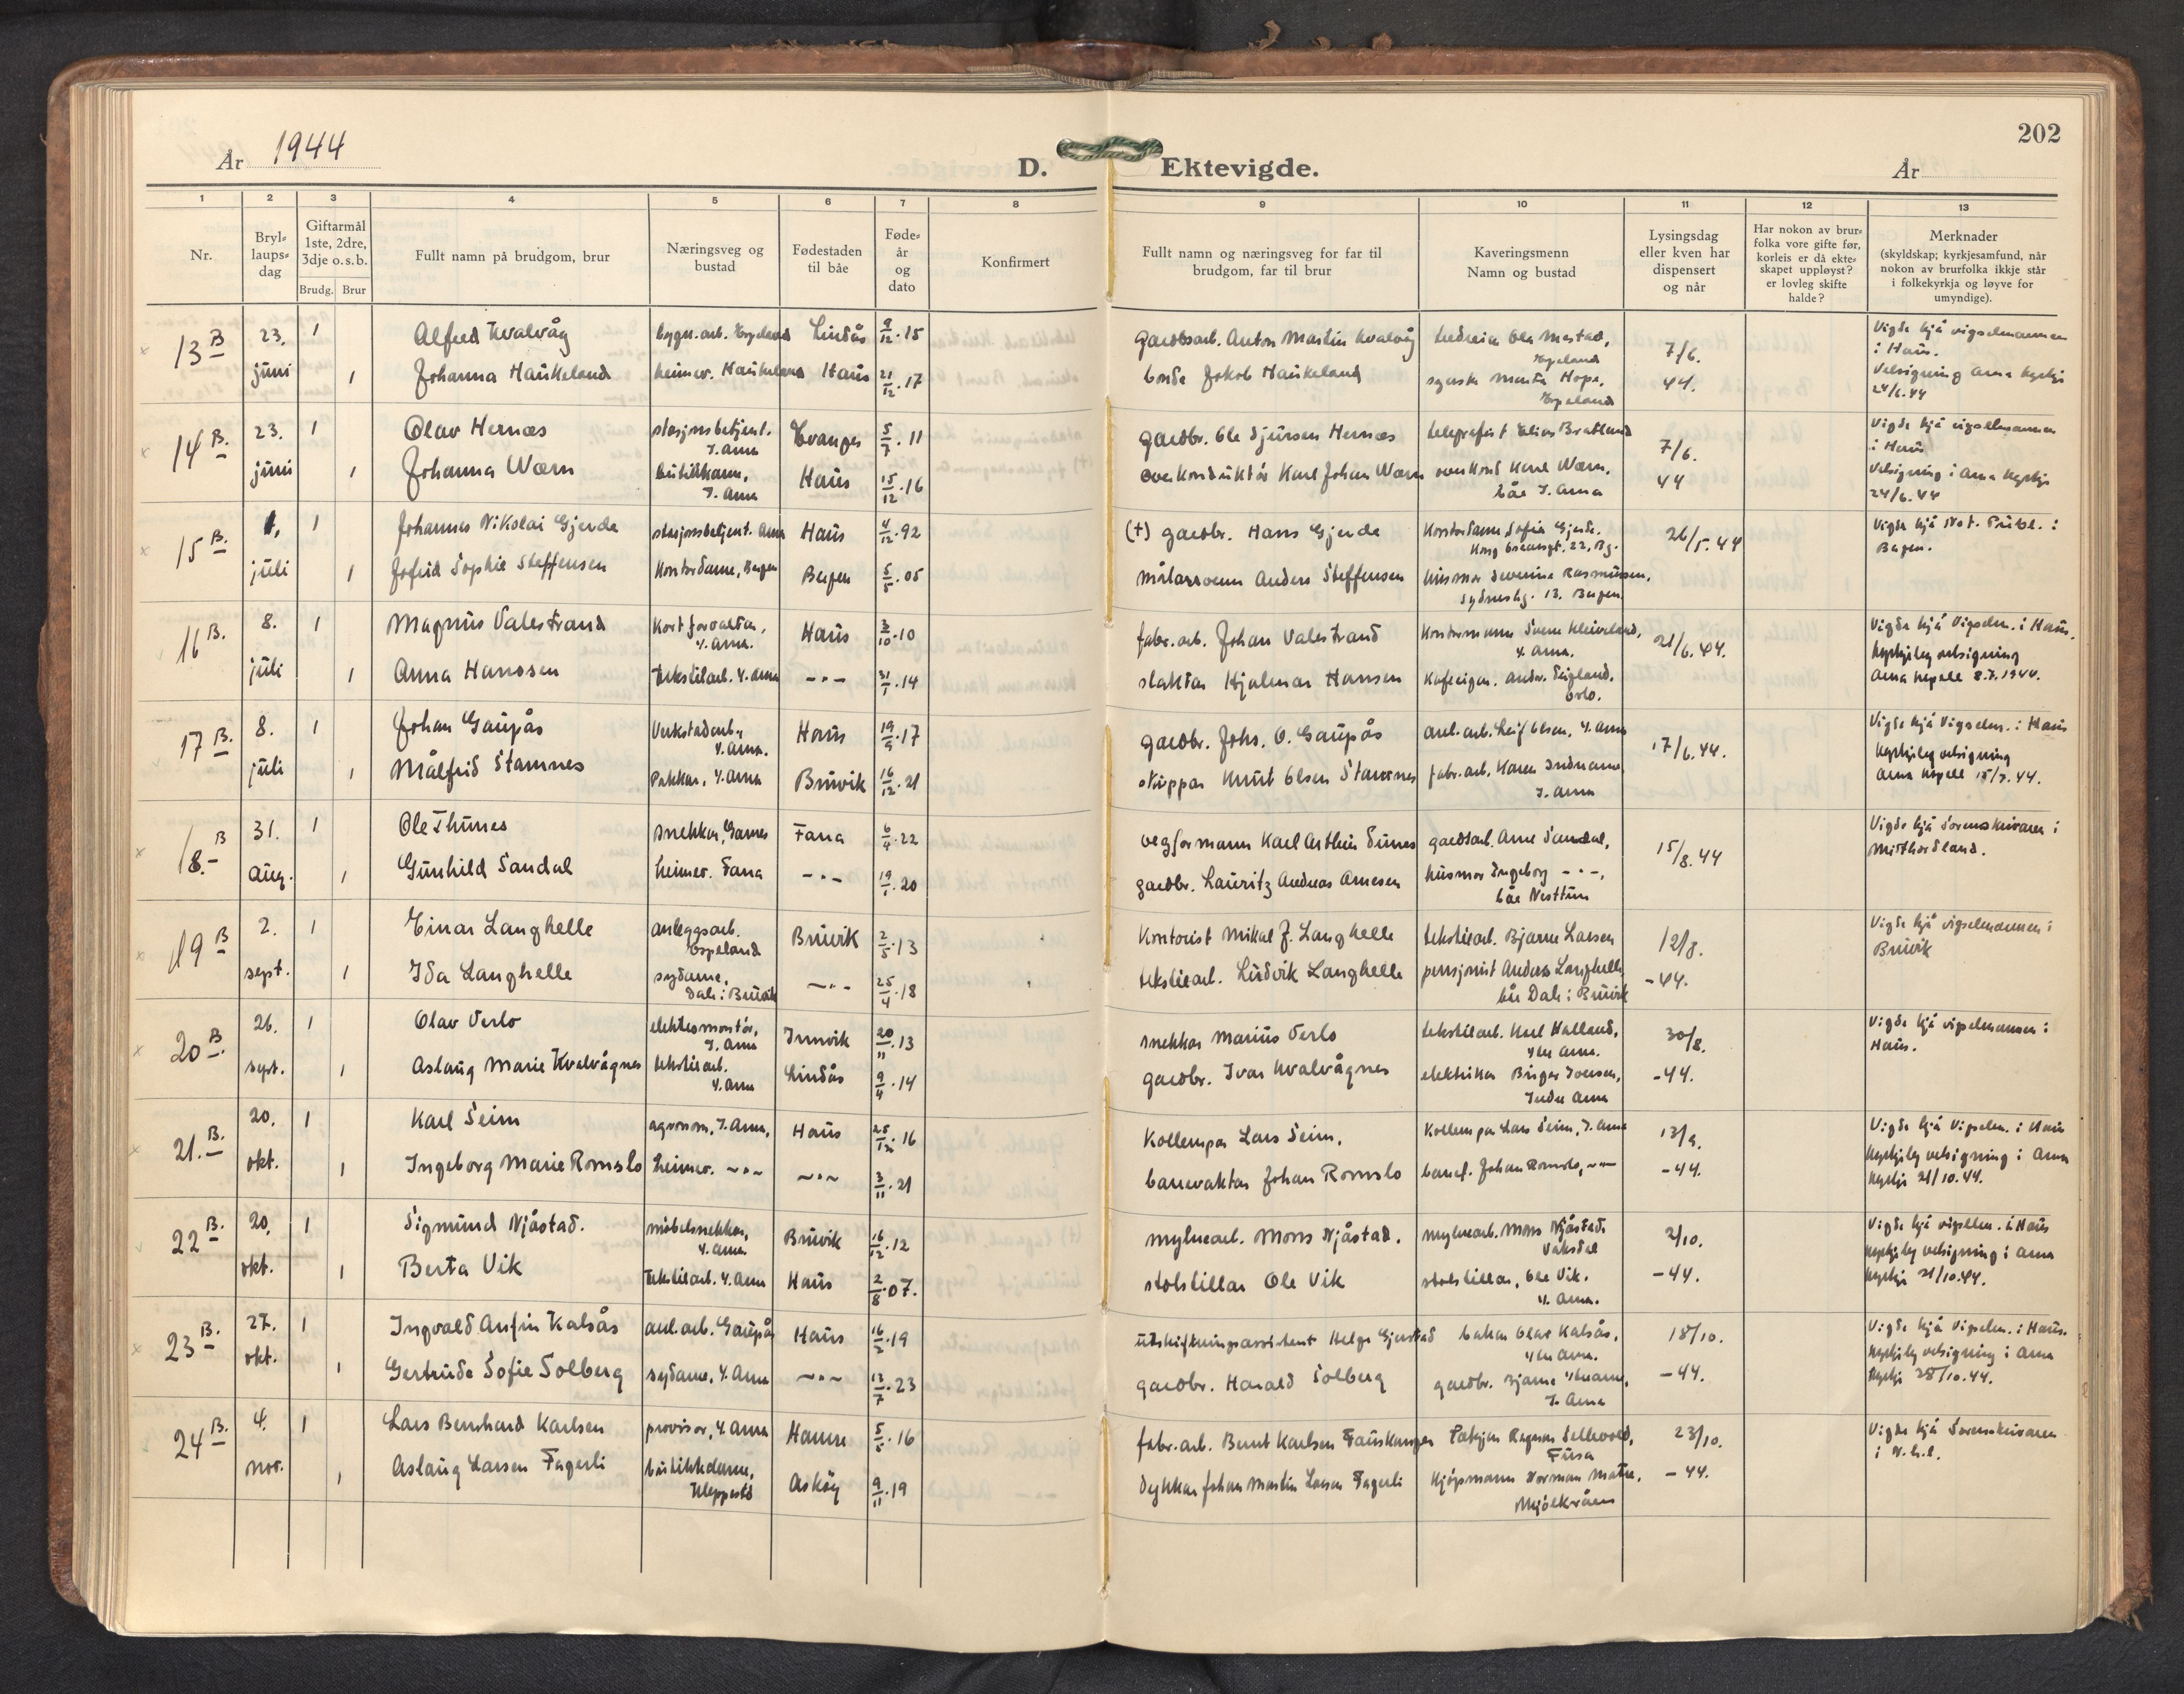 202
År 1944 D. Ektevigde. År
1 2 3 4 5 6 7 8 9 10 11 12 13
Nr.
Bryllaupsdag
Giftarmål 1ste, 2dre, 3dje o.s.b.
Brudg. Brur
Fullt namn på brudgom, brur
Næringsveg og bustad
Fødestaden til båe
Fødeår og dato
Konfirmert
Fullt namn og næringsveg for far til brudgom, far til brur
Kaveringsmenn
Namn og bustad
Lysingsdag eller kven har dispensert og når
Har nokon av brurfolka vore gifte før, korleis er då ekteskapet uppløyst? er lovleg skifte halde?
Merknader
(skyldskap; kyrkjesamfund, når nokon av brurfolka ikkje står i folkekyrkja og løyve for umyndige).
13 B 23. 1 Alfred Kvalvåg bygn.arb. Espeland Lindås 9/12.15 gardsarb. Anton Martin Kvalvåg Ole Mestad, Espeland 7/6. Vigde hjå vigselmannen i Haus.
juni 1 Johanna Haukeland heimev. Haukeland Haus 21/12.17 bonde Jakob Haukeland Hope, Espeland 44. Velsigning Arna kyrkje 24/6.44
14 B. 23. 1 Olav Hernæs stasjonsbetjent. I. Arna Evanger 5/7.11 gardbr. Ole Sjursen Hernæs telegrafist Elias Bratland 7/6. Vigde hjå vigselmannen i Haus
juni 1 Johanna Wærn butikkdame, I. Arna Haus 15/12.16 overkonduktør Karl Johan Wærn overkond Karl Wærn, båe I. Arna 44 Velsigning i Arna kyrkje 24/6.44
15 B. 1, 1 Johannes Nikolai Gjerde stasjonsbetjent. Arna Haus 4/12.92 (†) gardbr. Hans Gjerde Kontordame Sofie Gjerde. Kong Oscarsgt. 22, Bg. 26/5.44 Vigde hjå Not. Publ. i Bergen.
juli 1 Jofrid Sophie Steffensen Kontordame, Bergen Bergen 5/5.05 målarsvenn Anders Steffensen husmor Severine Rasmussen, Sydneshg. 13. Bergen.
16 B. 8. 1 Magnus Valestrand Kortforvaltar, Y. Arna. Haus 3/10.10 fabr.arb. Johan Valestrand Kontormann Sverre Kleiveland, Y. Arna. 21/6.44. Vigde hjå Vigselm. i Haus.
juli 1 Anna Hanssen tekstilarb. Y. Arna -"- 31/1.14 slaktar Hjalmar Hansen Kafeeigar. Oslo. Kyrkjeleg velsigning Arna kapell 8.7.1944.
17 B. 8. 1 Johan Gaupås Verkstadarb., Y. Arna. Haus 19/9.17 gardbr. Johs. O. Gaupås anl.arb. Leif Olsen, Y. Arna 17/6.44. Vigde hjå Vigselm. i Haus
juli 1 Målfrid Stamnes Pakkar, Y. Arna Bruvik 16/12.21 skuppar Knut Olsen Stamnes fabr.arb. Karen Indrearne I. Arna Kyrkjeleg velsigning Arna kapell 15/7.44.
18. B 31. 1 Ole Thunes snekkar, Garnes Fana 6/4.22 vegformann Karl Arthur Tunes gardsarb. Arne Sandal, 15/8.44 Vigde hjå Sorenskrivaren i Midthordland.
aug. 1 Gunhild Sandal heimev. Fana -"- 19/1.20 gardbr. Lauritz Andreas Arnesen husmor Ingeborg -"-, båe Nesttun
19 B 2. 1 Einar Langhelle anleggsarb. Espeland Bruvik 2/5.13 Kontorist Mikal J. Langhelle tekstilarb. Bjarne Larsen 12/8. Vigde hjå vigselmannen i Bruvik
sept. 1 Ida Langhelle sydame, Dale i Bruvik -"- 25/4.18 tekstilarb. Ludvik Langhelle pensjonist Anders Langhelle båe Dale i Bruvik -44.
20 B. 26. 1 Olav Verlo elektromontør, I. Arna Innvik 20/11.13 snekkar Marius Verlo tekstilarb. Karl Halland, Ytre Arna. 30/8. Vigde hjå vigselmannen i Haus.
sept. 1 Aslaug Marie Kvalvågnes tekstilarb. Y. Arna Lindås 9/4.14 gardbr. Ivar Kvalvågnes elektrikar Birger Iversen, Indre Arna -44.
21. B. 20. 1 Karl Seim agronom, I. Arna, Haus 25/12.16 Kollempar Lars Seim, Kollempar Lars Seim, I. Arna 13/9. Vigde hjå Vigselm. i Haus
okt. 1 Ingeborg Marie Romslo heimev. -"- -"- 3/11.21 banevaktar Johan Romslo banef. Johan Romslo, -"- -44. Kyrkjeleg velsigning i Arna kyrkje 21/10.44.
22 B. 20. 1 Sigmund Njåstad. møbelsnekkar, Y. Arna Bruvik 16/12.12 mylnearb. Mons Njåstad. mylnearb. Mons Njåstad. Vaksdal 2/10. Vigde hjå vigselm. i Haus
okt. 1 Berta Vik tekstilarb. Y. Arna Haus 2/8.07. stolstillar Ole Vik stolstillar, Ole Vik. Y. Arna. -44. Kyrkjeleg velsigning i Arna kyrkje 21/10.44.
23 B. 27. 1 Ingvald Anfin Kalsås anl.arb. Gaupås Haus 16/2.19 utskiftningsassistent Helge Gjerstad bakar Olav Kalsås, Ytre Arna. 18/10. Vigde hjå Vigselm. i Haus.
okt. 1 Gertrude Sofie Solberg sydame, Y. Arna -"- 13/7.23 gardbr. Harald Solberg gardbr. Bjarne I. Arna -44. Kyrkjeleg velsigning i Arna kyrkje 28/10.44.
24 B. 4. 1 Lars Bernhard Karlsen provisor, Y. Arna Hamre 5/5.16 fabr.arb. Bernt Karlsen Fauskanger Ragnar Sellevold, Fusa 23/10. Vigde hjå Sorenskrivaren i N.h.l.
nov. 1 Aslaug Larsen Fagerli butikkdame, Kleppestø Askøy 9/11.19 dykkar Johan Martin Larsen Fagerli Kjøpmann Norman Matre, Mjølkeråen -44.